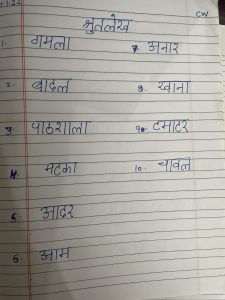 4.1.22
CW
श्रुतलेख
1. गमला
2. बादल
3. पाठशाला
4. मटका
5. आदर
6. आम
7. अनार
8. खाना
9. टमाटर
10. चावल